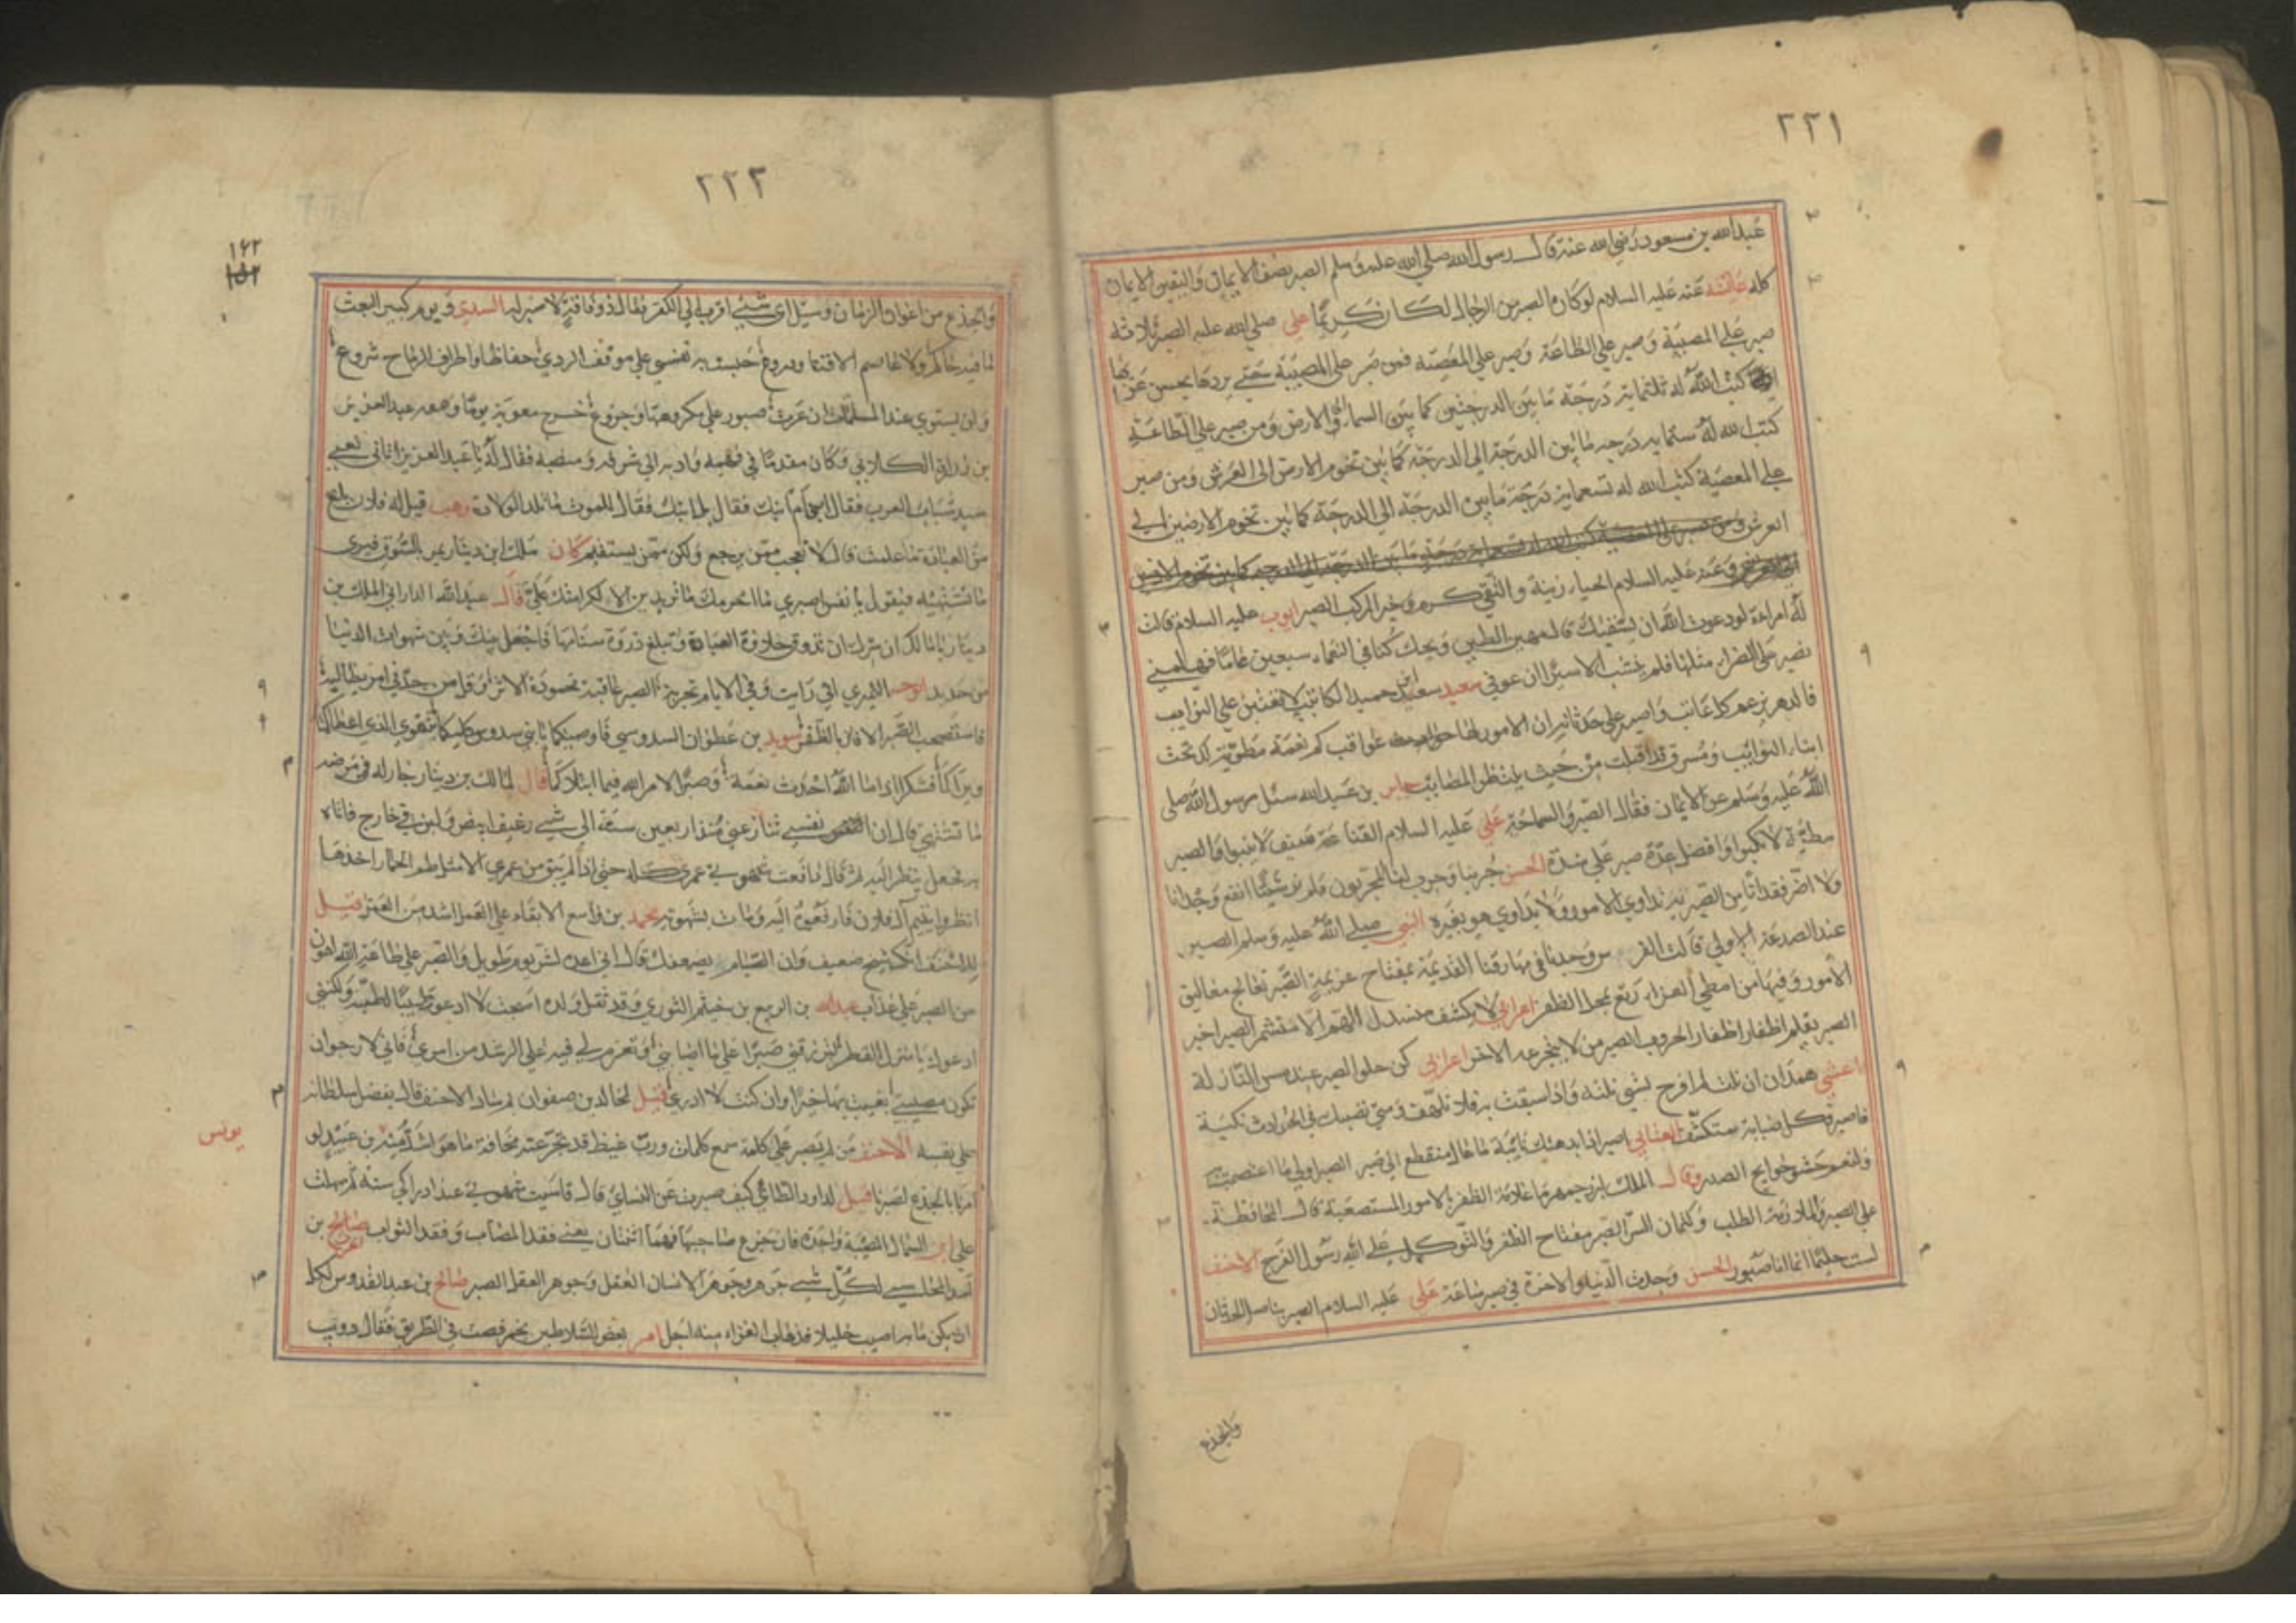 ٢٢١
عبد الله بن مسعود رضي الله عنه قال رسول الله صلي الله عليه وسلم الصبر نصف الايمان واليقين الايمان
كله عائشة عنه عليه السلام لوكان الصبر من الرجال لكان كريمًا علي صلي الله عليه الصبر ثلاثه
صبر علي المصيبة وصبر علي الطاعة وصبر علي المعصيه فمن صبر علي المصيبة حتي يردها بحسن عزائها
كتب الله له ثلثماية درجة ما بين الدرجتين كما بين السماء والارض ومن صبر علي الطاعة
كتب الله له ستمايه درجه ما بين الدرجة الي الدرجة كما بين تخوم الارض الى العرش ومن صبر
علي المعصية كتب الله له تسعماية درجة ما بين الدرجة الي الدرجة كما بين تخوم الارضين الي
العرش ومن صبر علي المعصية كتب الله له تسعماية درجة ما بين الدرجة الي الدرجه كما بين تخوم الارضين
وعنه عليه السلام الحياء زينة والتقي كرم وخير المركب الصبر ايوب عليه السلام قالت
له امراءة لو دعوت الله ان يشفيك قال ويحك كنا في النعماء سبعين عاما فهلمي
نصبر علي الضراء مثلها فلم ينشب الا يسيرًا ان عوفي سعيد بن حميد الكاتب لا تعتبن علي النوايب
فالدهر يرغم كل عاتب واصبر علي حدثانه ان الامور لها عواقب كم نعمة مطوية لك تحت
اثناء النوائب ومسرة قد اقبلت من حيث ينتظر المصايب جابر بن عبد الله سئل رسول الله صلي
الله عليه وسلم عن الايمان فقال الصبر والسماحة علي عليه السلام القناعة سيف لا ينبوا والصبر
مطية لا تكبوا وافضل عدة صبر علي شدة الحسن جربنا وجرب لنا المجربون فلم نر شيئًا انفع وجدانا
ولا اضر فقدانًا من الصبر به تداوي الامور ولا يداوي هو بغيره النبي صلي الله عليه وسلم الصبر
عند الصدمة الاولي قالت الفرس وجدنا في مهارقنا القديمة بمفتاح عزيمة الصبر تعالج مغاليق
الامور وفيها من امطي العزاء ربع بمحل الظفر اعرابي لا يكشف منسدل الهم الا مقشم الصبر اخر
الصبر يقلم اظفار الحروب الصبر من لا يتجرعه الا حر اعرابي كن حلو الصبر عند مس النازلة
اعشي همدان ان نلت لم افرح بشي نلته واذا سبقت به فلا تلهف ومتي تصبك في الحوادث نكبة
فاصبر فكل ضبابة ستكشف العتابي اصبر اذا بدهتك نائبة ما عال منقطع الي صبر الصبر اولي ما اعتصمت به
ولنعم حشو جوانح الصدر وقال الملك لبزرجمهر ما علامة الظفر بالامور المستصعبة قال المحافظة
علي الصبر والملازمة الطلب وكتمان السر الصبر مفتاح الظفر والتوكل علي الله رسول الفرج الاحنف
لست حليمًا انما انا صبور الحسن وجدت الدنيا والاخرة في صبر ساعة علي عليه السلام الصبر يناضل الحدثان
والجذع
٢٢٢
١٦٢
والجذع من اعوان الزمان وسيل اي شئي اقرب الي الكفر فقال ذو فاقة لا صبر له السدي ويوم كبير البعث
ما فيه حاكم ولا عاصم الا قنا ودروع حبست به نفسي علي موقف الردي حفاظا واطراف الرماح شروع
ولن يستوي عند الملمات ان عرت صبور علي مكروهها وجزوع خرج معوية يومًا ومعه عبد العزيز
بن زرارة الكلابي وكان مقدمًا في فهمه وادبه الي شرفه ومنصبه فقال له يا عبد العزيز اتاني نعي
سيد شباب العرب فقال ابني ام ابنك فقال بل ابنك فقال للموت ما تلد الوالدة وهب قيل له فلان بلغ
من العبادة ما علمت قال لا تعجب ممن يرجع ولكن ممن يستقيم كان مالك ابن دينار يمر بالسوق فيري
ما تشتهيه فيقول يا نفس اصبري ما احرمك ما تريدين الا لكرامتك علي قال عبد الله الداراني لمالك بن
دينار يا مالك ان سرك ان تذوق حلاوة العبادة وتبلغ ذروة سنامها فاجعل بينك وبين شهوات الدنيا
من حديد ابو حية النميري اني رايت وفي الايام تجربة الصبر عاقبة محمودة الاثر وقل من جد في امر يطالبه
فاستصحب الصبر الا فاز بالظفر سويد بن عطوان السدوسي فاوصيكما يا بني سدوس كليكما بتقوي الذي اعطاكما
وبراكما فشكرا اذا ما الله احدث نعمة وصبرًا لامر الله فيما ابتلاكما قال لمالك بن دينار جار له في مرضه
ما تشتهي قال ان نفسي تنازعني منذ اربعين سنة الى شي رغيف ابيض ولبن في زجاج فاتاه
به فجعل ينظر اليه ثم قال دافعت شهوتي عمري كله حتي اذا لم يبق من عمري الا مثل ظم الحمار اخذها
انظروا يتيم آل فلان فادفعوه اليه ومات بشهوته محمد بن واسع الابقاء علي العمل اشد من العمل قيل
للاحنف انك شيخ ضعيف وان الصيام يضعفك قال اني اعده لشر يوم طويل والصبر علي طاعة الله اهون
من الصبر علي عذاب عبد الله بن الربيع بن خيثم الثوري وقد ثقل ولده اصبحت لا ادعو طبيبًا لطبه ولكنني
ادعوك يا منزل القطر لترزقني صبرًا علي ما اصابني وتعزم لي فيه علي الرشد من امري فاني لارجو ان
تكون مصيبتي بغيت بها خيرًا وان كنت لا ادري قيل لخالد بن صفوان لم ساد الاحنف قال بفضل سلطانه
علي نفسه الاحنف من لم يصبر علي كلمة سمع كلمات ورب غيظ قد تجرعته مخافة ما هو اشد منه يونس بن عبيد لو
امرنا بالجزع لصبرنا قيل لداود الطائي كيف صبرت عن النساء قال قاسيت شهوتي عند ادراكي سنة ثم سهلت
علي ابن السماك المصيبة واحدة فان جزع صاحبها فهما اثنتان يعني فقد المصاب وفقد الثواب
لكل شيء جوهر وجوهر الانسان العقل وجوهر العقل الصبر صالح بن عبد القدوس
ان يكن ما به اصيب جليلا فذهاب العزاء منه اجل امر بعض السلاطين فقال
يونس